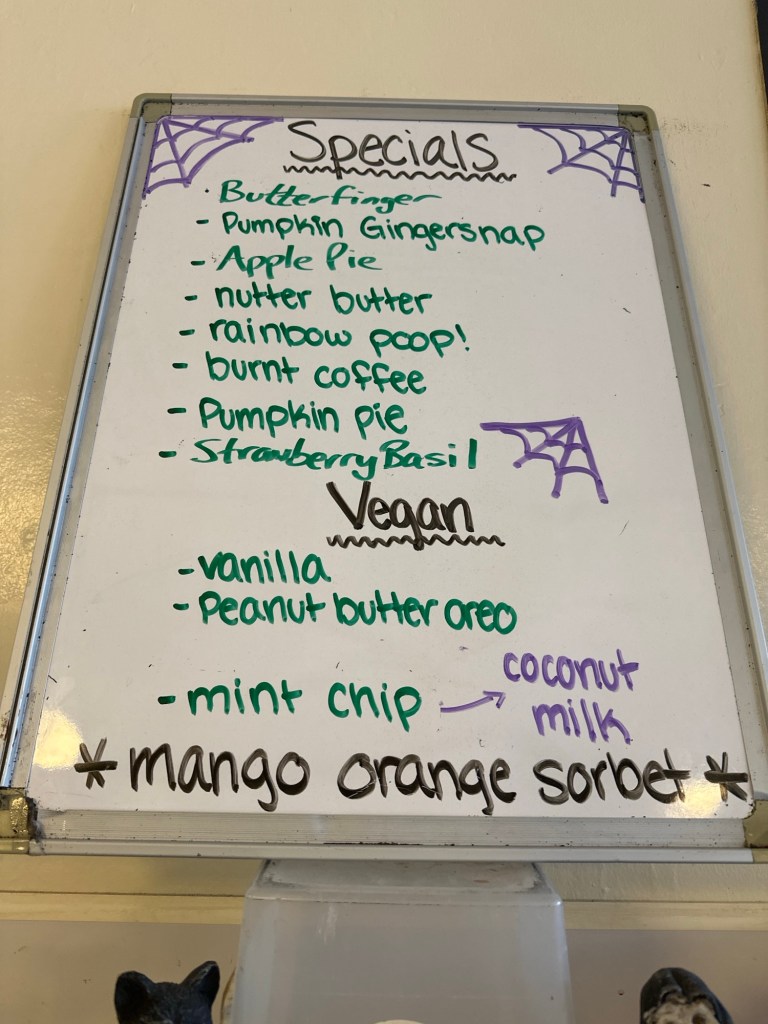 Specials
· Butterfinger
- Pumpkin Gingersnap
- Apple Pie
- nutter butter
- rainbow poop!
- burnt coffee
- Pumpkin pie
- Strawberry Basil
Vegan
- vanilla
- Peanut butter oreo
- mint chip → coconut milk
* mango orange sorbet *